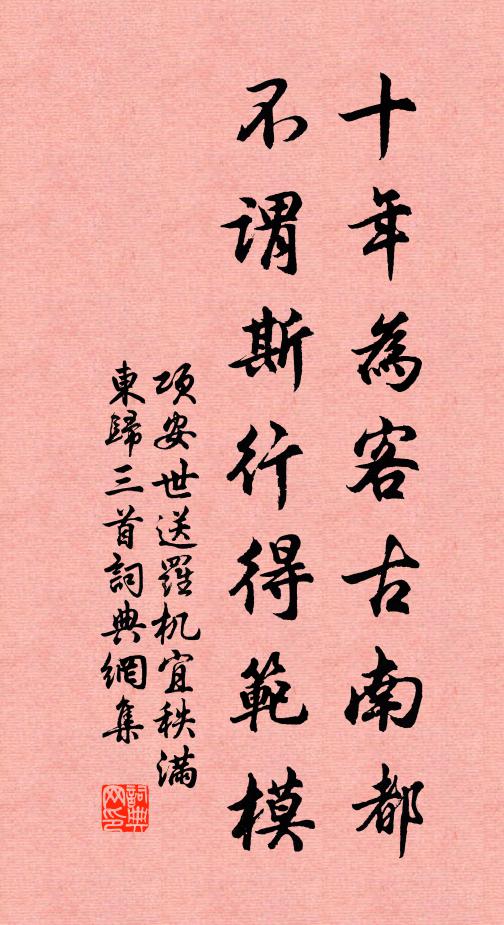 十年為客古南都
不謂斯行得範模
項安世送羅机宜秩滿
東歸三首詞典網集
詞典網印